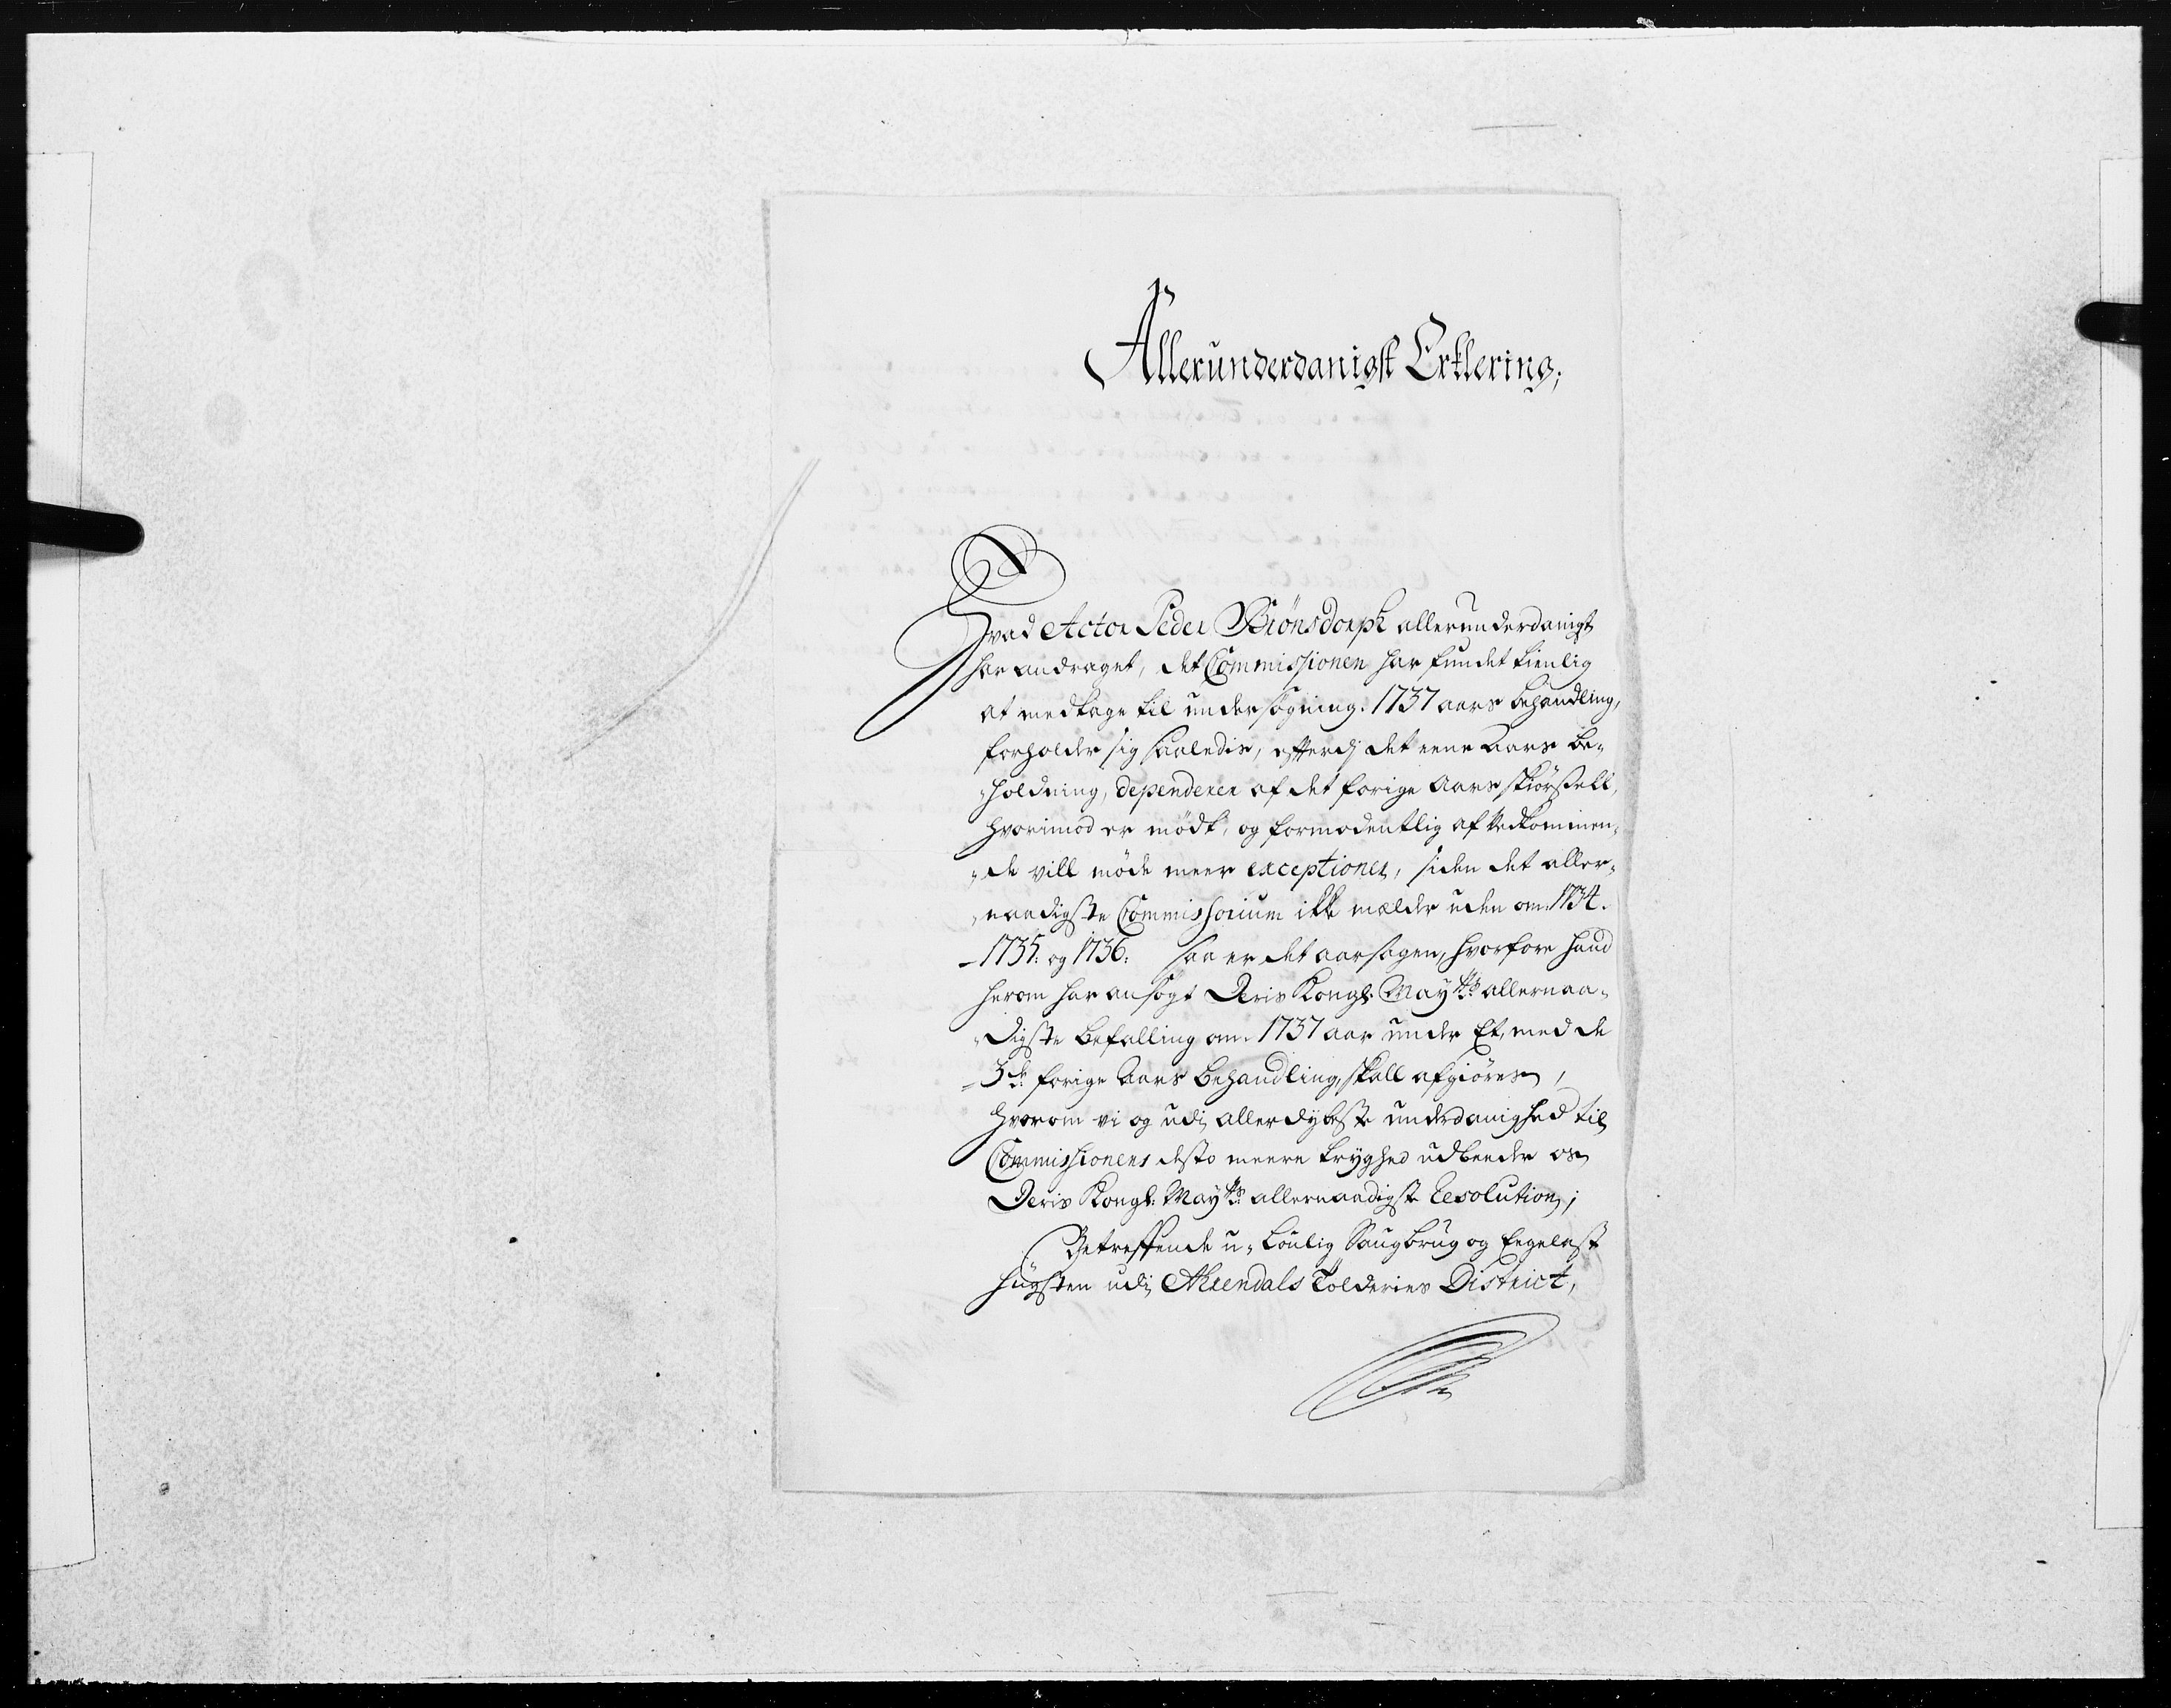 Allerunderdanigst Erklering;
Hvad Actor Peder Biönsdorph allerunderdanigst
har andraget, det Commissionen har fundet tienlig
at medtage til undersögning. 1737 aars behandling,
forholder sig saaledis, efterdj det eene Aars be-
"holdning, dependerer af det forige Aars skiörsell,
hvorimod er mödt, og formodentlig af vedkommen-
"de vill möde meer exceptioner, siden det aller-
"naadigste Commissorium ikke melder uden om 1734.
-1735: og 1736: saa er det aarsagen, hvorfore hand
herom har ansögt Deris Kongl: Mayts: allernaa-
"digste befalling om 1737 aar under Et, med de
-3de: forige Aars behandling, skall afgiöres,
hvorom vi og udi allerdybeste underdanighed til
Commissionens desto meere tryghed udbeeder os
Deris Kongl: Mayts: allernaadigste Resolution;
Betreffende u-loulig Saugbrug og Eegelast
hugsten udi Ahrendals Tolderies District,